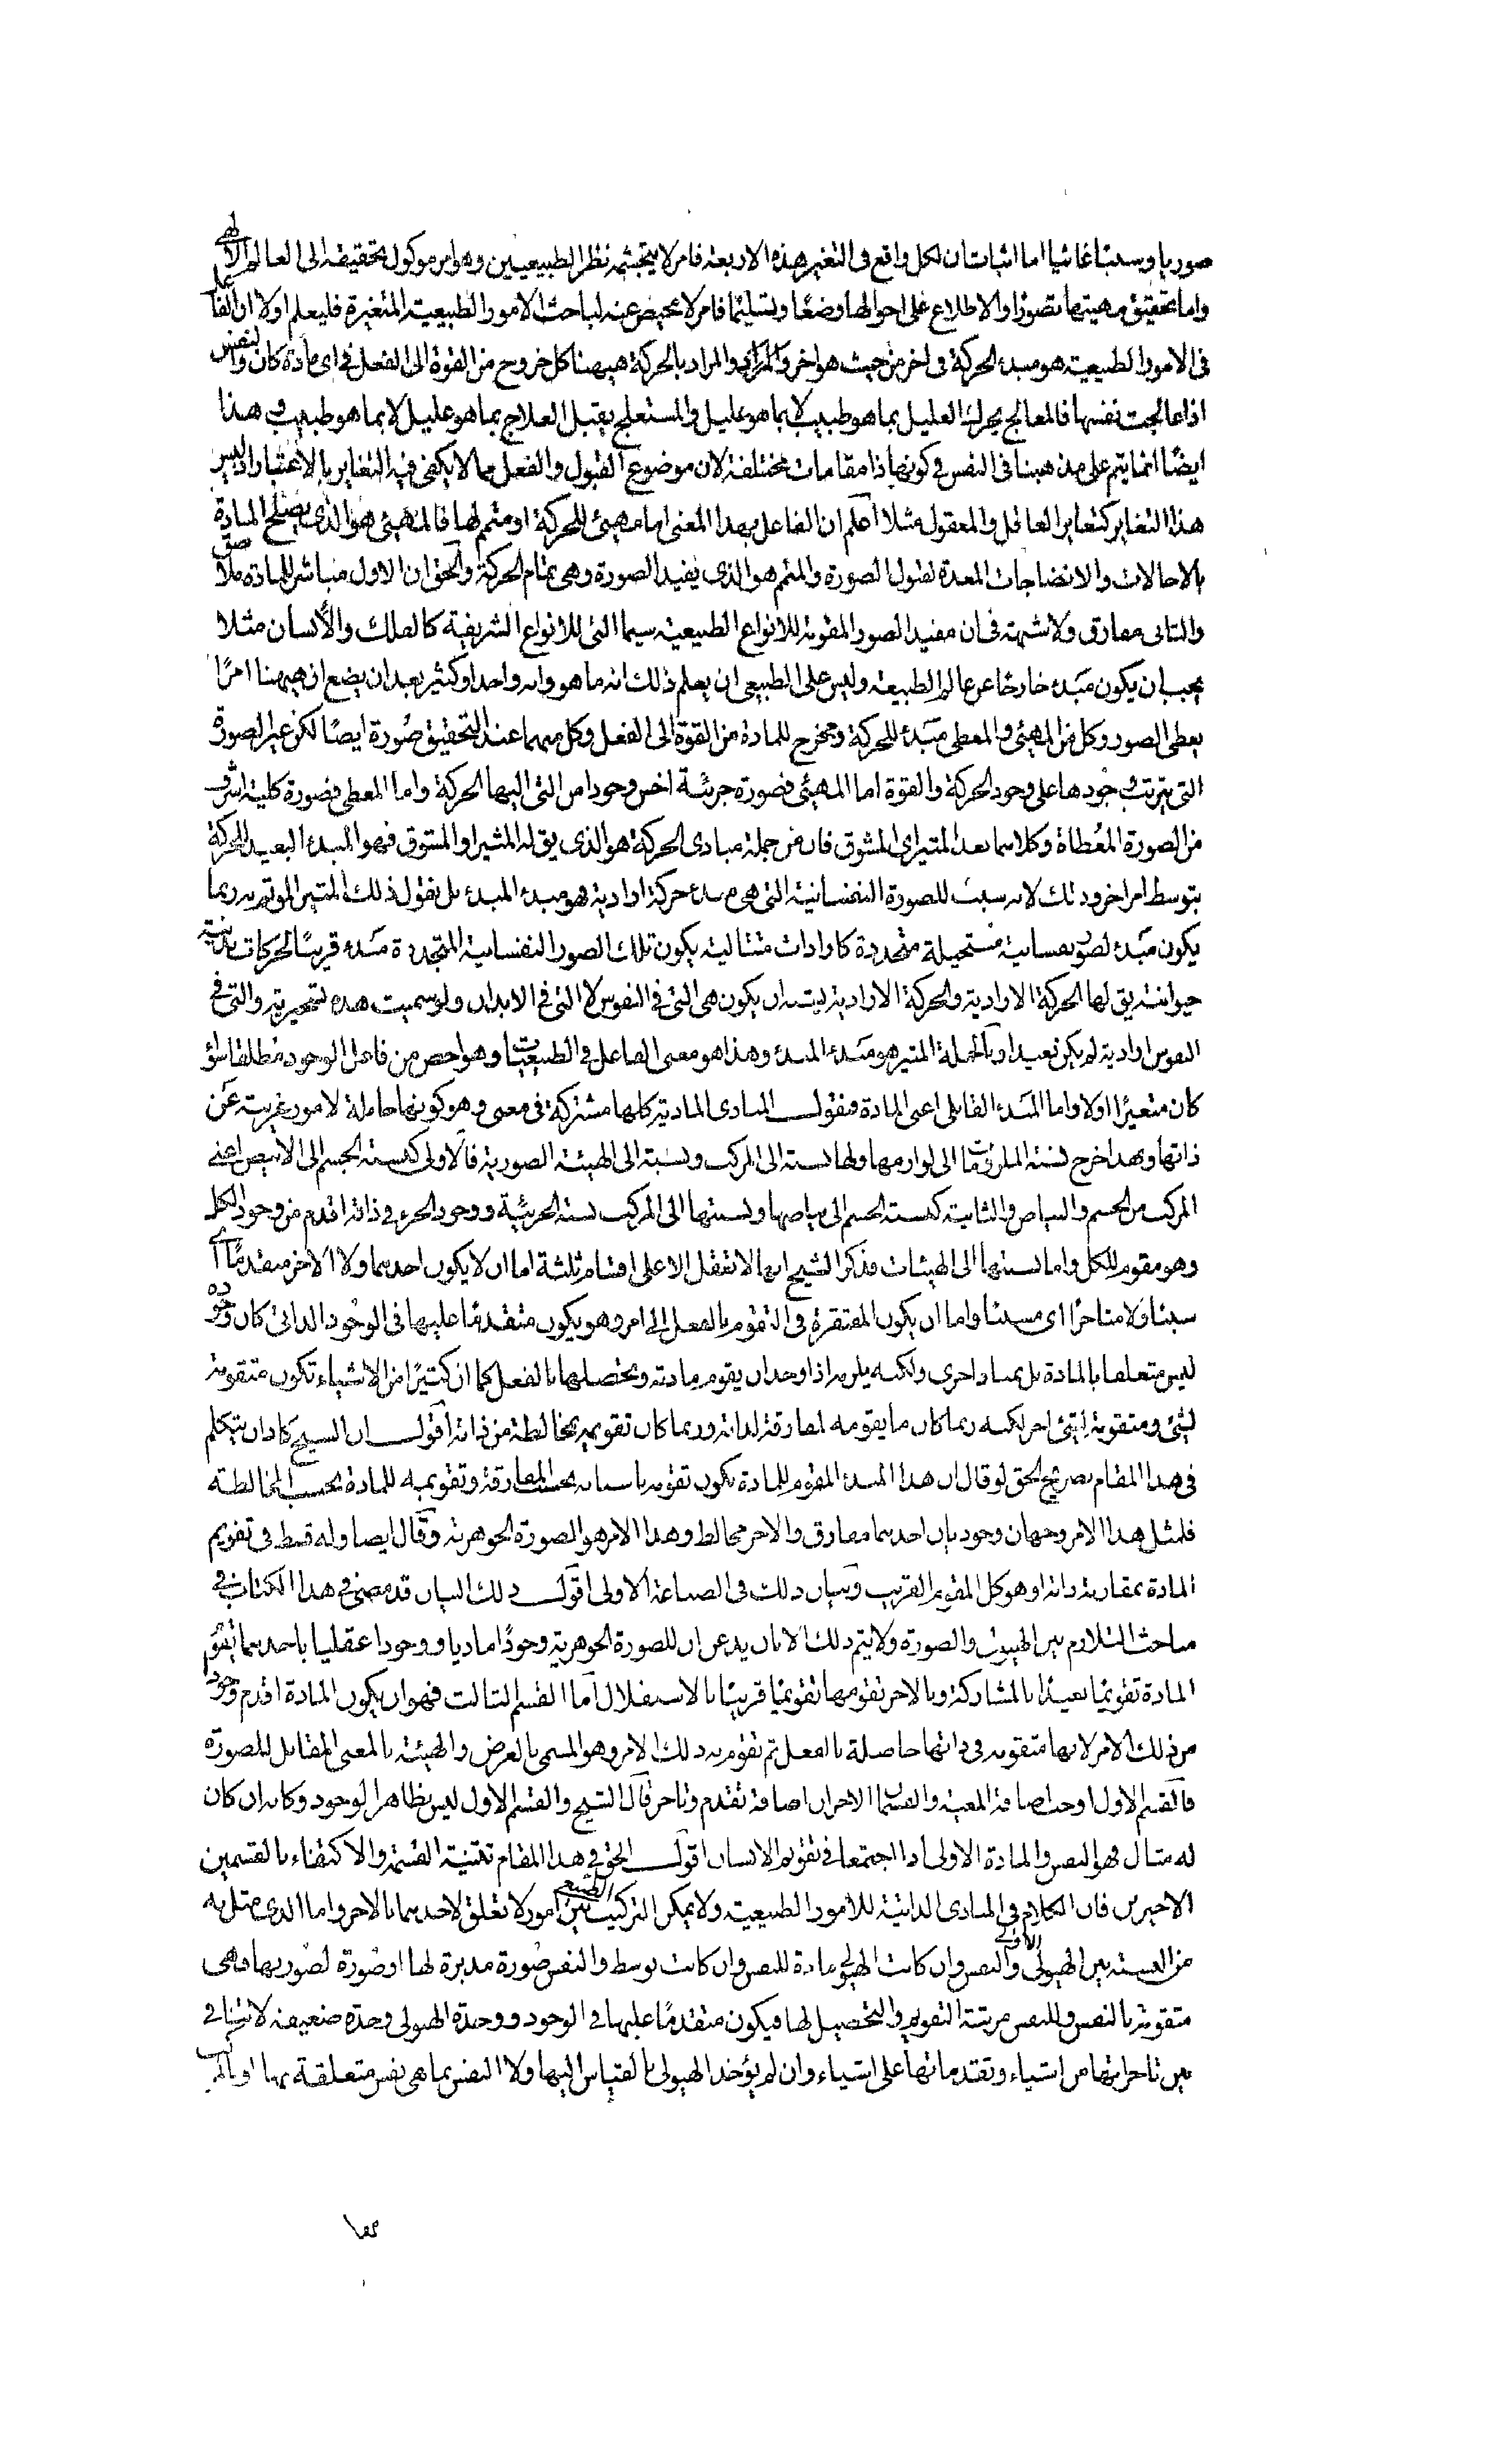 صوريا وسببا غائيا اما اثبات ان لكل واقع فى التغير هذه الاربعة فامر لا يتجشمه نظر الطبيعيين وهو امر موكول تحقيقه الى العالم الالهى
واما تحقيق مهيتها تصورا والاطلاع على احوالها وضعًا وتسليمًا فامر لا محيص عنه لباحث الامور الطبيعية المتغيرة فليعلم اولا ان الفاعل
فى الامور الطبيعية هو مبدء الحركة فى اخر من حيث هو اخر والمراد بالحركة هيهنا كل خروج من القوة الى الفعل فى اى مادة كان والنفس
اذا عالجت نفسها فالمعالج يحرك العليل بما هو طبيب لا بما هو عليل والمستعلج يقبل العلاج بما هو عليل لا بما هو طبيب وهذا
ايضًا انما يتم على مذهبنا فى النفس فى كونها ذا مقامات مختلفة لان موضوع القبول والفعل مما لا يكفى فيه التغاير بالاعتبار اذ ليس
هذا التغاير كتغاير العاقل والمعقول مثلا اعلم ان الفاعل بهذا المعنى اما مهيئ للحركة او متمم لها فالمهيئ هو الذى يصلح المادة
بالاحالات والانضاجات المعدة لقبول الصورة والمتمم هو الذى يفيد الصورة وهى تمام الحركة والحق ان الاول مباشر للمادة ملاصق
والثانى مفارق ولا شبهة فى ان مفيد الصور المقومة للانواع الطبيعية سيما التى للانواع الشريفة كالفلك والانسان مثلا
يجب ان يكون مبدء خارجًا عن عالم الطبيعة وليس على الطبيعى ان يعلم ذلك انه ما هو وانه واحد او كثير بعد ان يضع ان هيهنا امرًا
يعطى الصور وكل من المهيئ والمعطى مبدء للحركة ومخرج للمادة من القوة الى الفعل وكل منهما عند التحقيق صورة ايضًا لكن غير الصورة
التى يترتب وجودها على وجود الحركة والقوة اما المهيئ فصورة جزئية اخس وجودا من التى اليها الحركة واما المعطى فصورة كلية اشرف
من الصورة المعطاة وكلاهما بعد المثير اى المشوق فان من جملة مبادى الحركة هو الذى يق له المثير او المشوق فهو المبدء البعيد للحركة
بتوسط امر اخر وذلك لانه سبب للصورة النفسانية التى هى مبدء حركة ارادية هو مبدء المبدء بل نقول ذلك المثير الموتم به ربما
يكون مبدء لصور نفسانية مستحيلة متجددة كارادات متتالية يكون تلك الصور النفسانية المتجددة مبدء قريبًا لحركات بدنية
حيوانية يق لها الحركة الارادية والحركة الارادية يشبه ان يكون هى التى فى النفوس لا التى فى الابدان ولو سميت هذه تسخيرية والتى فى
النفوس ارادية لم يكن بعيدا وبالجملة المثير هو مبدء المبدء وهذا هو معنى الفاعل فى الطبيعيات وهو اخص من فاعل الوجود مطلقا سواء
كان متغيرًا اولا واما المبدء القابلى اعنى المادة فنقول المبادى المادية كلها مشتركة فى معنى وهو كونها حاملة لامور غريبة عن
ذاتها وبهذا خرج نسبة الملزومات الى لوازمها ولها نسبة الى المركب ونسبة الى الهيئة الصورية فالاولى كنسبة الجسم الى الابيض اعنى
المركب من الجسم والبياض والثانية كنسبة الجسم الى بياضها ونسبتها الى المركب نسبة الجزئية ووجود الجزء فى ذاته اقدم من وجود الكل
وهو مقوم للكل واما نسبتها الى الهيئات فذكر الشيخ انها لا تعقل الا على اقسام ثلثة اما ان لا يكون احدهما ولا الاخر متقدمًا اى
سببًا ولا متاخرًا اى مسببًا واما ان يكون المفتقرة فى التقوم بالفعل الى امر وهو يكون متقدمًا عليها فى الوجود الذاتى كان وجوده
ليس متعلقا بالمادة بل بمبادٍ اخرى ولكنه يلزمه اذا وجد ان يقوم مادته ويحصلها بالفعل كما ان كثيرًا من الاشياء تكون متقومة
لشئ ومتقومة بشئ اخر لكنه ربما كان ما يقومه لمفارقة لذاته وربما كان تقويمه بمخالطة من ذاته اقول ان الشيخ كاد ان يتكلم
فى هذا المقام بصريح الحق لو قال ان هذا المبدء المقوم للمادة يكون تقومه باسبابه بحسب المفارقة وتقويمه للمادة بحسب المخالطة
فلمثل هذا الامر وجهان وجوديان احدهما مفارق والاخر مخالط وهذا الامر هو الصورة الجوهرية وقال ايضا وله قسط فى تقويم
المادة بمقارنة ذاته او هو كل المقوم القريب وبيان ذلك فى الصناعة الاولى اقول ذلك البيان قد مضى فى هذا الكتاب فى
مباحث التلازم بين الهيولى والصورة ولا يتم ذلك الا بان يدعن ان للصورة الجوهرية وجودًا ماديا ووجودا عقليا باحدهما تقوم
المادة تقويمًا بعيدًا بالمشاركة وبالاخر تقومها تقويمًا قريبًا بالاستقلال اما القسم الثالث فهو ان يكون المادة اقدم وجودا
من ذلك الامر لانها متقومة فى ذاتها حاصلة بالفعل ثم تقوم به ذلك الامر وهو المسمى بالعرض والهيئة بالمعنى المقابل للصورة
فالقسم الاول اوجب اضافة المعية والقسمان الاخران اضافة تقدم وتاخر قال الشيخ والقسم الاول ليس بظاهر الوجود وكانه ان كان
له مثال فهو النفس والمادة الاولى اذا اجتمعا فى تقويم الانسان اقول الحق فى هذا المقام تثنية القسمة والاكتفاء بالقسمين
الاخيرين فان الكلام فى المبادى الذاتية للامور الطبيعية ولا يمكن التركيب الطبيعى بين امور لا تعلق لاحدهما بالاخر واما الذى مثل به
من النسبة بين الهيولى الاولى والنفس وان كانت الهيولى مادة للنفس وان كانت بوسط والنفس صورة مدبرة لها او صورة لصوريها فهى
متقومة بالنفس وللنفس مرتبة التقويم والتحصيل لها فيكون متقدمًا عليها فى الوجود ووحدة الهيولى وحدة ضعيفة لا تنافى
بين تاخراتها من اشياء وتقدماتها على اشياء وان لم يؤخذ الهيولى بالقياس اليها ولا النفس بما هى نفس متعلقة بها